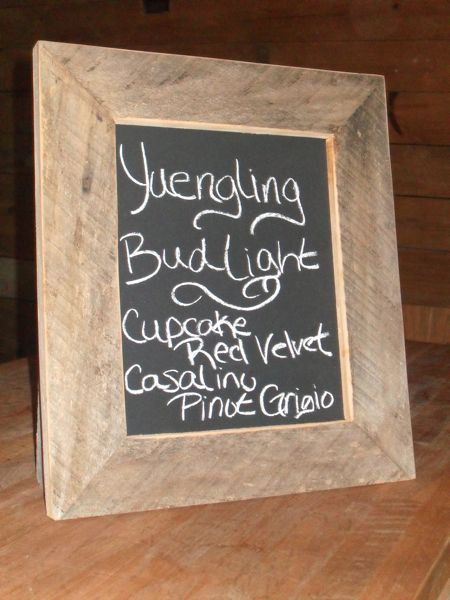 Yuengling
Bud Light
Cupcake
Red Velvet
Casalinu
Pinot Grigio